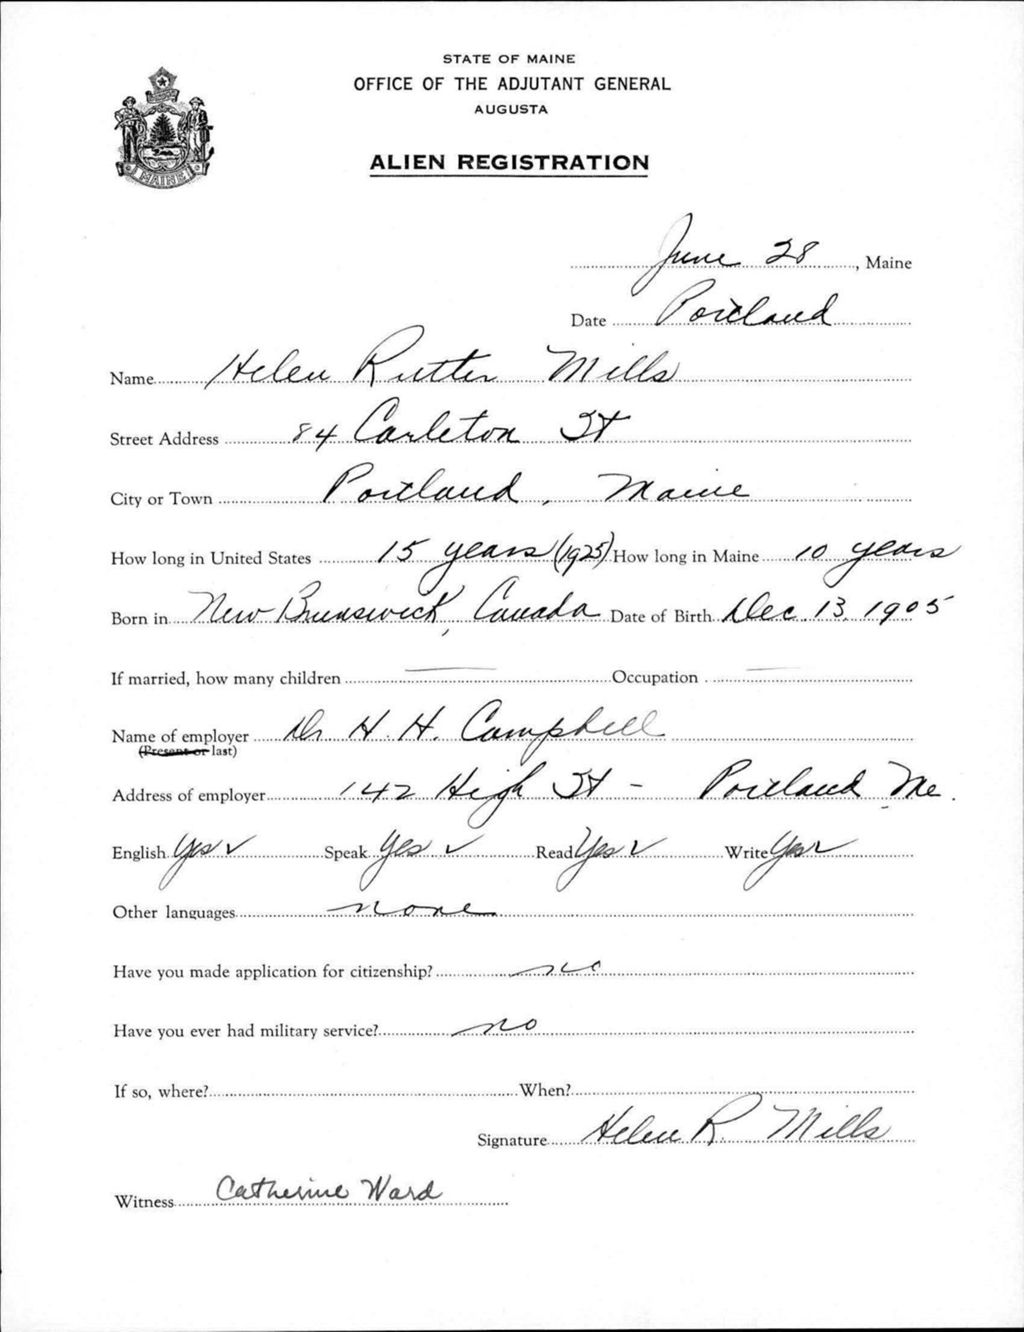 STATE OF MAINE
OFFICE OF THE ADJUTANT GENERAL
AUGUSTA
ALIEN REGISTRATION
MAINE
June 28, Maine
Date Portland
Name Helen Rutter Mills
Street Address 84 Carleton St
City or Town Portland, Maine
How long in United States 15 years (1925) How long in Maine 10 years
Born in New Brunswick, Canada Date of Birth Dec. 13, 1905
If married, how many children — Occupation —
Name of employer Dr H. H. Campbell
(Present or last)
Address of employer 142 High St - Portland Me.
English Yes ✓ Speak Yes ✓ Read Yes ✓ Write Yes ✓
Other languages none
Have you made application for citizenship? no
Have you ever had military service? no
If so, where? When?
Signature Helen R. Mills
Witness Catherine Ward